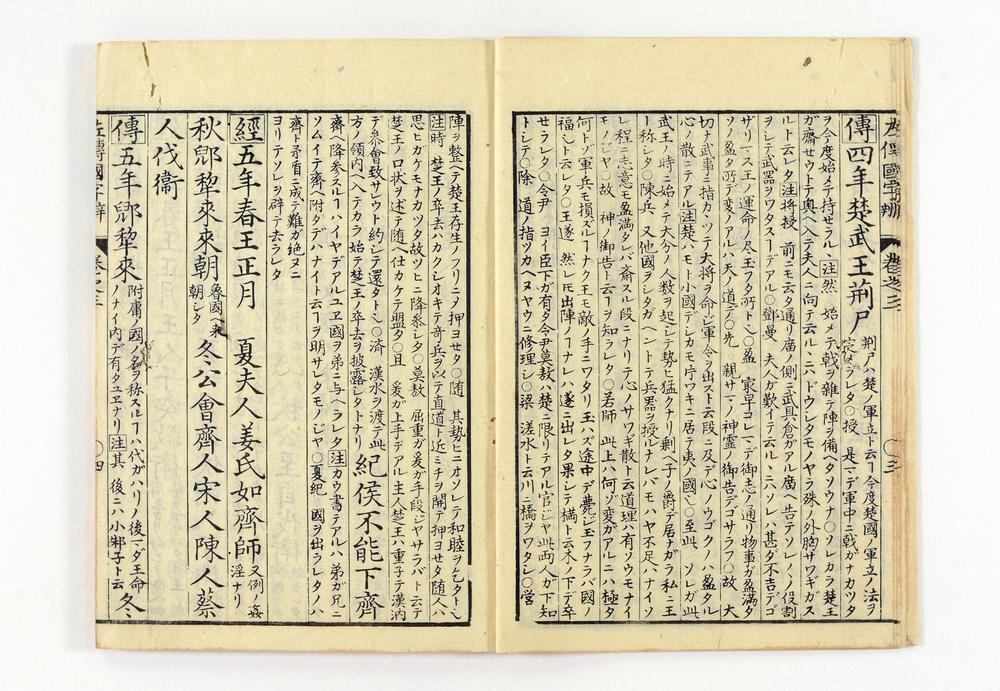 左傳國字辨 卷之三 〇三
傳四年楚武王荊尸 荊尸ハ楚ノ軍立ト云ヿ今度楚國ノ軍立ノ法ヲ
定メラレタ〇授 是マデ軍中ニ戟ガナカツタ
ヲ今度始メテ持セラル、注然 始メテ戟ヲ雜テ陣ヲ備ヘタソウナ〇ソレカラ楚王
ガ齋セウトテ奧ヘ入テ夫人ニ向テ云ル、ニハドウシタモノヤラ殊ノ外胸サワギガス
ルト云レタ注將授 前ニモ云タ通リ廣ノ側ニ武具倉ガアル廣ヘ告テソレ〳〵ノ役割
ヲシテ武器ヲワタスヿデアル〇鄧曼 夫人ガ歎イテ云ル、ニハソレハ甚ダ不吉デゴ
ザリマス王ノ運命ノ尽玉フタ所デ〇盈 家早コレマデ御志ノ通リ物事ガ盈滿タ
ソノ盈タ所デ変ノアルハ天ノ道デ〇先 親サマノ神靈ノ御告デゴザラフ〇故 大
切ナ武事ニ指カヽツテ大将ヲ命ジ軍令ヲ出スト云段ニ及デ心ノウゴクノハ盈タル
心ノ散ニテアル注楚ハモト小國デシカモ片ワキニ居テ夷ノ國デ〇至此
武王ノ時ニ始メテ大分ノ人数ヲ起シテ勢ヒ猛クナリ剩ヘ子ノ爵デ居ナガラ私ニ王
ト称シタ〇陳兵 又他國ヲシタガヘントテ兵器ヲ授ルナレバモハヤ不足ハナイソ
レ程ニ志意モ盈滿タレバ齋スル段ニナリテ心ノサワギ散ト云道理ハ有ソウモナイ
モノジヤ〇故 神ノ御告ト云ヿヲ知ラレタ〇若師 此上ハ何ゾ変ガアルニハ極タ
何トゾ軍兵モ損ズルヿナク王モ敵ノ手ニワタリ玉ハズ途中デ薨ジ玉フナラバ國ノ
福ジト云レタ〇王遂 然レ𪜈出陣ノヿナレハ遂ニ出レタ果シテ樠ト云木ノ下デ卒
セラレタ〇令尹 ヨイ臣下ガ有タ令尹莫敖ハ楚ニ限リテアル官ジヤ此両人ガ下知
トシテ〇除 道ノ指ツカヘヌヤウニ修理シ〇梁 溠水ト云川ニ橋ヲワタシ〇営
陣ヲ整ヘテ楚王存生ノフリニメ押ヨセタ〇随 其勢ヒニオソレテ和睦ヲ乞タト〵
注時 楚王ノ卒去ハカクシオキテ奇兵ヲ以テ直道ト近ミチヲ開テ押ヨセタ随人ハ
思ヒガケモナカツタ故ソコニ降参シタ〇莫敖 屈重ガ爰ガ手段ジヤサラバト云テ
楚王ノ口狀ヲ述テ随ヘ仕カケテ盟タ〇且 爰ガ上手デアル主人楚王ハ重子テ漢汭
デ参會致サウト約シテ還タト〵〇済 漢水ヲ渡テ此
方ノ領内ヘ入ヘテカラ始テ楚王ノ卒去ヲ披露シタト〵ナリ 紀侯不能下齊
齊ヘ降参スルヿハイヤデアルユヱ國ヲ弟ニ与ヘラレタ注カウ書テアルハ弟ガ兄ニ
ソムイテ齊ヘ附タデハナイト云ヿヲ明サレタモノジヤ〇夏紀 國ヲ出ラレタノハ
齊ト矛盾ニ成テ難ガ絶ヌニ
ヨリテソレヲ辟テ去ラレタ
經五年春王正月 夏夫人姜氏如齊師 又例ノ姦
淫ナリ
秋郳犂來來朝 魯國ヘ来
朝シタ 冬公會齊人宋人陳人蔡
人伐衞
傳五年郳犂來 附庸ノ國ノ名ヲ称スルヿハ代ガハリノ後マダ王命
ノナイ内デ有タユヱナリ注其 後ニハ小邾子ト云 冬
左傳國字辨 卷之三 〇四